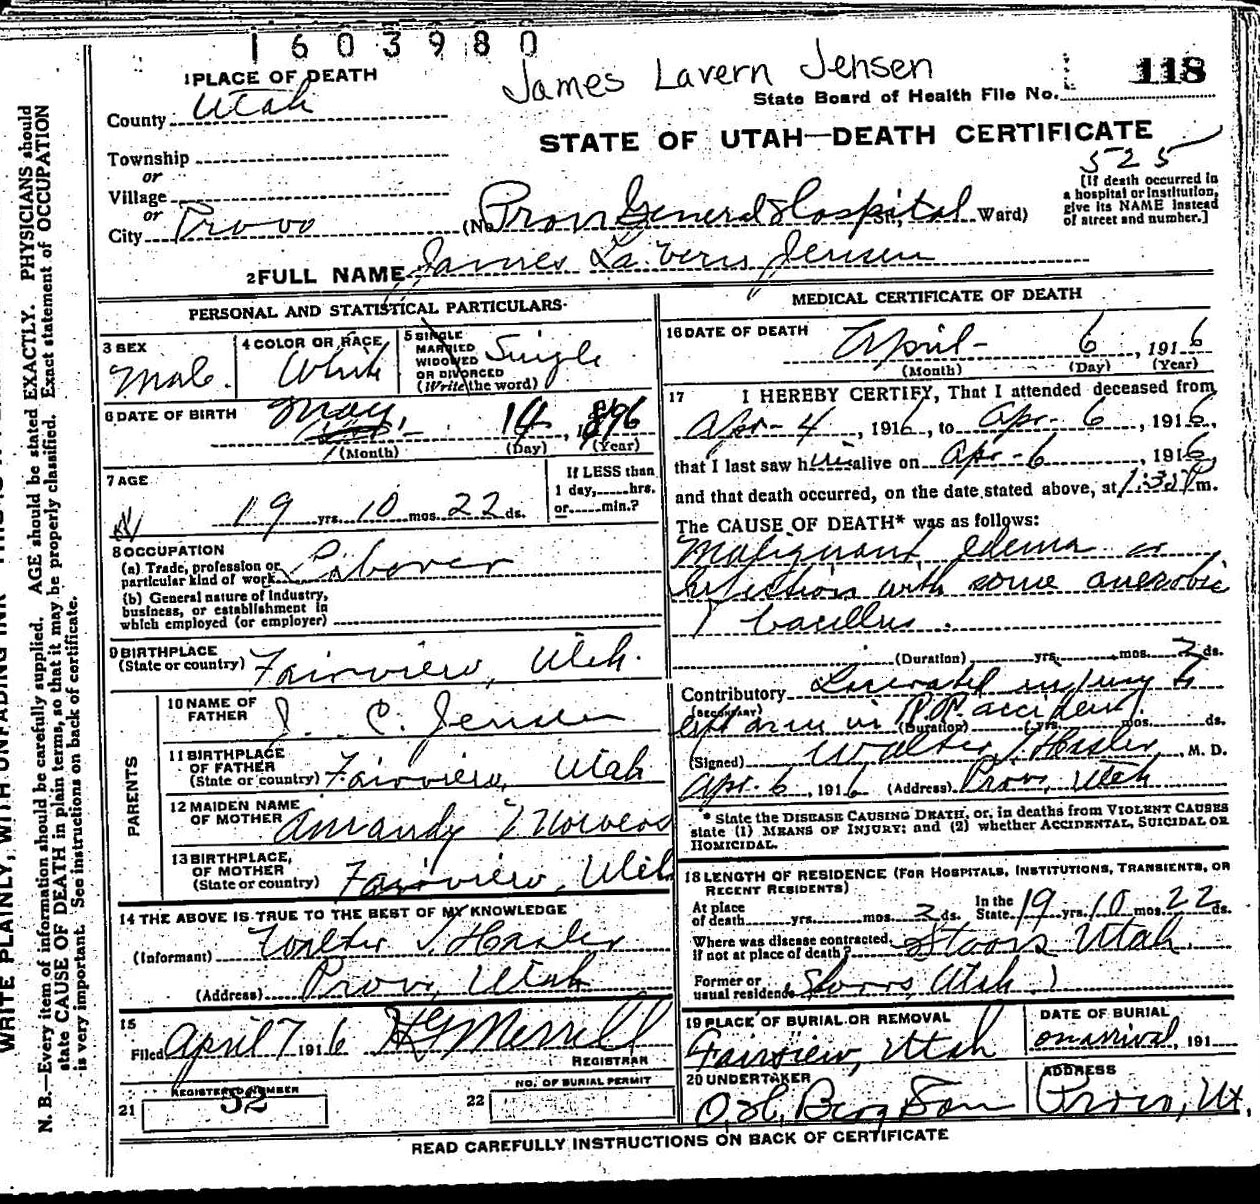 1603980
James Lavern Jensen
118
State Board of Health File No.
STATE OF UTAH—DEATH CERTIFICATE
525
[If death occurred in
a hospital or institution,
give its NAME instead
of street and number.]
1 PLACE OF DEATH
County Utah
Township
or
Village
or
City Provo (No. Provo General Hospital St., Ward)
2 FULL NAME James La Vern Jensen
PERSONAL AND STATISTICAL PARTICULARS
3 SEX
Male.
4 COLOR OR RACE
White
5 SINGLE
MARRIED
WIDOWED
OR DIVORCED
(Write the word)
Single
6 DATE OF BIRTH
May 14, 1896
(Month) (Day) (Year)
7 AGE
19 yrs. 10 mos. 22 ds.
If LESS than
1 day, hrs.
or min.?
8 OCCUPATION
(a) Trade, profession or
particular kind of work Laborer
(b) General nature of Industry,
business, or establishment in
which employed (or employer)
9 BIRTHPLACE
(State or country) Fairview, Utah.
PARENTS
10 NAME OF
FATHER J. C. Jensen
11 BIRTHPLACE
OF FATHER
(State or country) Fairview, Utah
12 MAIDEN NAME
OF MOTHER
13 BIRTHPLACE,
OF MOTHER
(State or country) Fairview, Utah
14 THE ABOVE IS TRUE TO THE BEST OF MY KNOWLEDGE
(Informant) Walter T. Hasler
(Address) Provo, Utah
15
Filed April 7 1916 H G Merrill
REGISTRAR
21 REGISTERED NUMBER
52
22 NO. OF BURIAL PERMIT
MEDICAL CERTIFICATE OF DEATH
16 DATE OF DEATH
April 6, 1916
(Month) (Day) (Year)
17 I HEREBY CERTIFY, That I attended deceased from
Apr-4, 1916, to Apr-6, 1916,
that I last saw him alive on Apr-6, 1916,
and that death occurred, on the date stated above, at 1:30 P m.
The CAUSE OF DEATH* was as follows:
Malignant edema or
infection with some anerobic
bacillus.
(Duration) yrs. mos. 2 ds.
Contributory Lacerated injury to
(SECONDARY)
arm in R.R. accident
(Duration) yrs. mos. ds.
(Signed) Walter T. Hasler, M. D.
Apr. 6, 1916 (Address) Provo, Utah
* State the DISEASE CAUSING DEATH, or, in deaths from VIOLENT CAUSES
state (1) MEANS OF INJURY; and (2) whether ACCIDENTAL, SUICIDAL OR
HOMICIDAL.
18 LENGTH OF RESIDENCE (FOR HOSPITALS, INSTITUTIONS, TRANSIENTS, OR
RECENT RESIDENTS)
At place
of death yrs. mos. 2 ds.
In the
State 19 yrs. 10 mos. 22 ds.
Where was disease contracted,
if not at place of death? Storrs Utah
Former or
usual residence Storrs, Utah
19 PLACE OF BURIAL OR REMOVAL
Fairview, Utah
DATE OF BURIAL
on arrival, 191
20 UNDERTAKER
O. H. Berg & Son
ADDRESS
Provo, Ut,
READ CAREFULLY INSTRUCTIONS ON BACK OF CERTIFICATE
N. B.—Every item of information should be carefully supplied. AGE should be stated EXACTLY. PHYSICIANS should
state CAUSE OF DEATH in plain terms, so that it may be properly classified. Exact statement of OCCUPATION
is very important. See instructions on back of certificate.